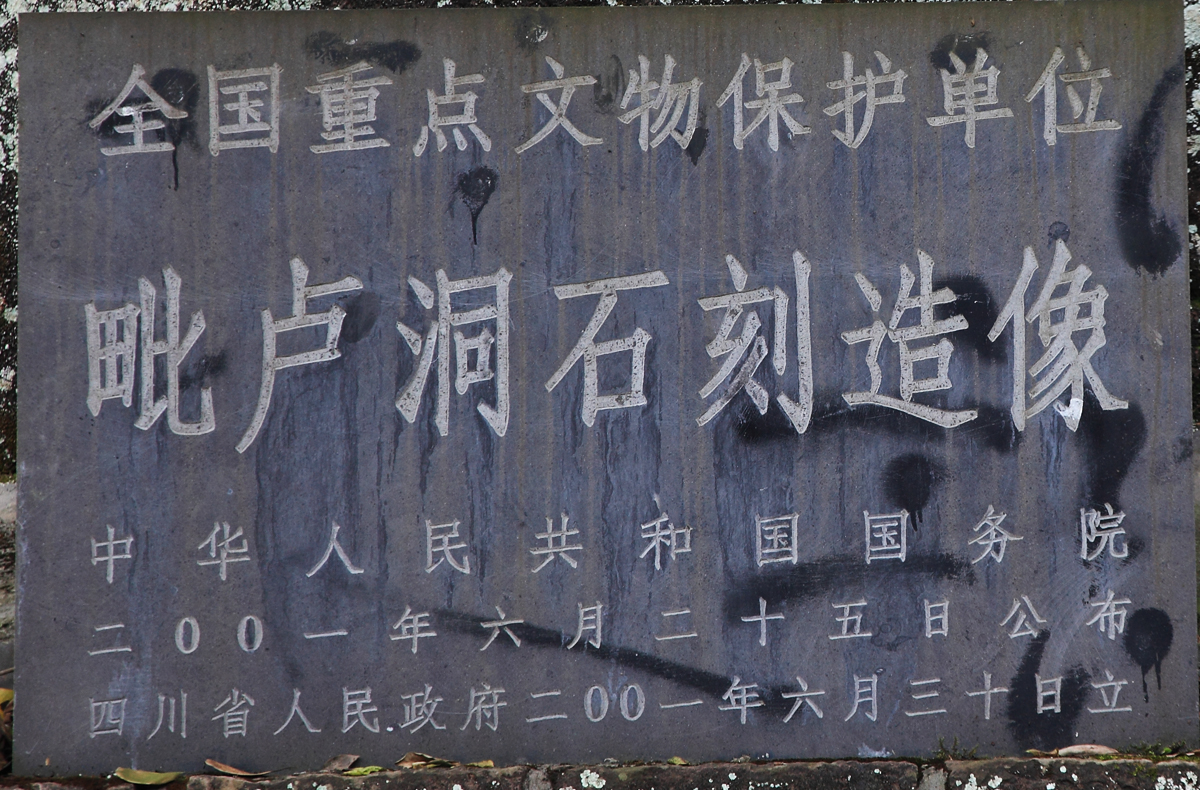 全国重点文物保护单位
毗卢洞石刻造像
中华人民共和国国务院
二00一年六月二十五日公布
四川省人民政府二00一年六月三十日立